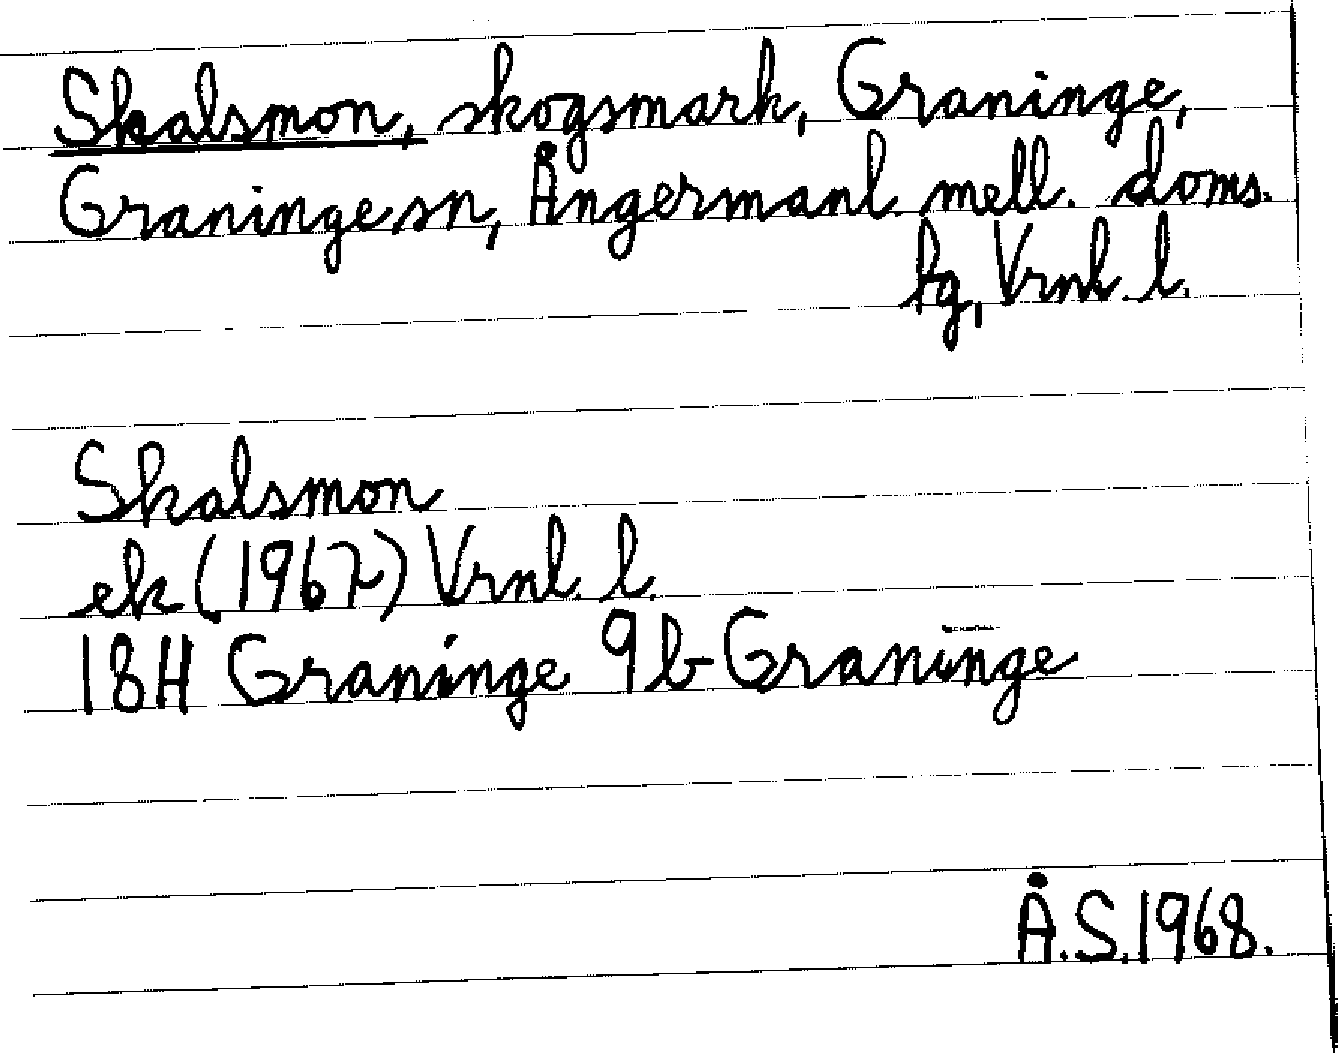 Skalsmon, skogsmark, Graninge,
Graninge sn, Ångermanl. mell. doms.
fg, Vrnl. l.
Skalsmon
ek (1967) Vrnl. l.
18H Graninge 9b Graninge
Å.S. 1968.